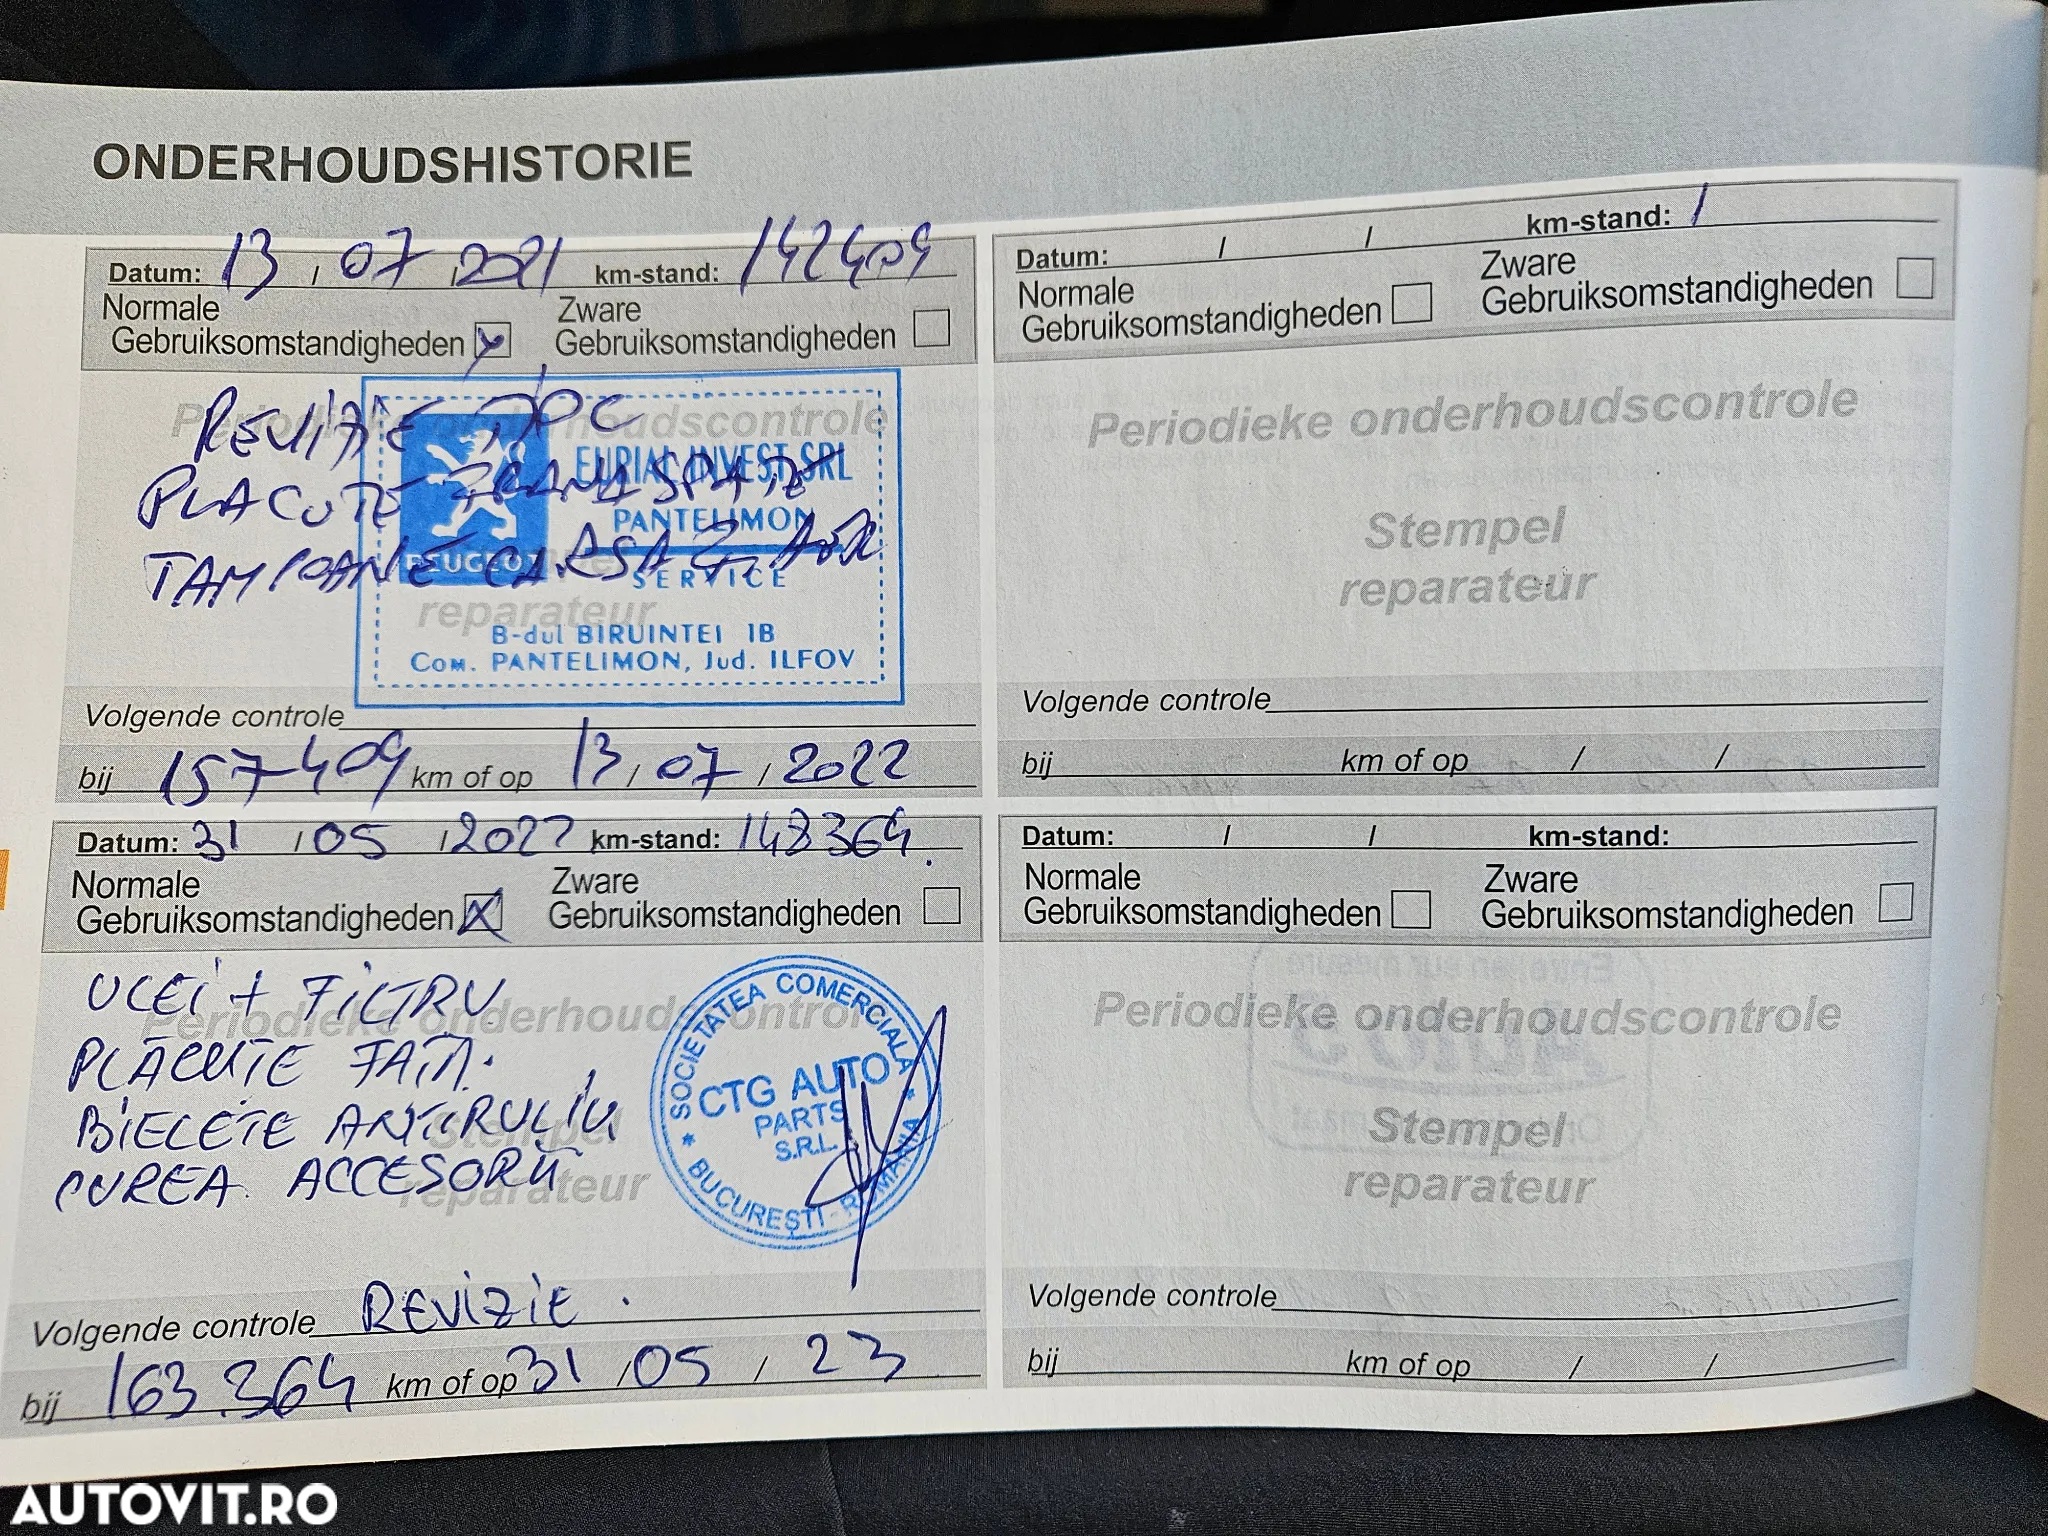 ONDERHOUDSHISTORIE
Datum: 13 / 07 / 2021 km-stand: 142409
Normale Gebruiksomstandigheden
Zware Gebruiksomstandigheden
Periodieke onderhoudscontrole
REVIZIE
PLACUTE SPATE
TAMPOANE
PEUGEOT
EURIAL INVEST SRL
PANTELIMON
SERVICE
reparateur
B-dul BIRUINTEI 1B
Com. PANTELIMON, Jud. ILFOV
Volgende controle
bij 157409 km of op 13 / 07 / 2022
Datum: 31 / 05 / 2022 km-stand: 148364.
Normale Gebruiksomstandigheden X
Zware Gebruiksomstandigheden
Periodieke onderhoudscontrole
ULEI + FILTRU
PLĂCUTE FATA.
BIELETE ANTIRULIU
CUREA ACCESORII
Stempel
reparateur
SOCIETATEA COMERCIALA
CTG AUTO
PARTS
S.R.L.
BUCUREȘTI - ROMANIA
Volgende controle REVIZIE.
bij 163.364 km of op 31 / 05 / 23
Datum: / / km-stand: /
Normale Gebruiksomstandigheden
Zware Gebruiksomstandigheden
Periodieke onderhoudscontrole
Stempel
reparateur
Volgende controle
bij km of op / /
Datum: / / km-stand:
Normale Gebruiksomstandigheden
Zware Gebruiksomstandigheden
Periodieke onderhoudscontrole
Stempel
reparateur
Volgende controle
bij km of op / /
AUTOVIT.RO